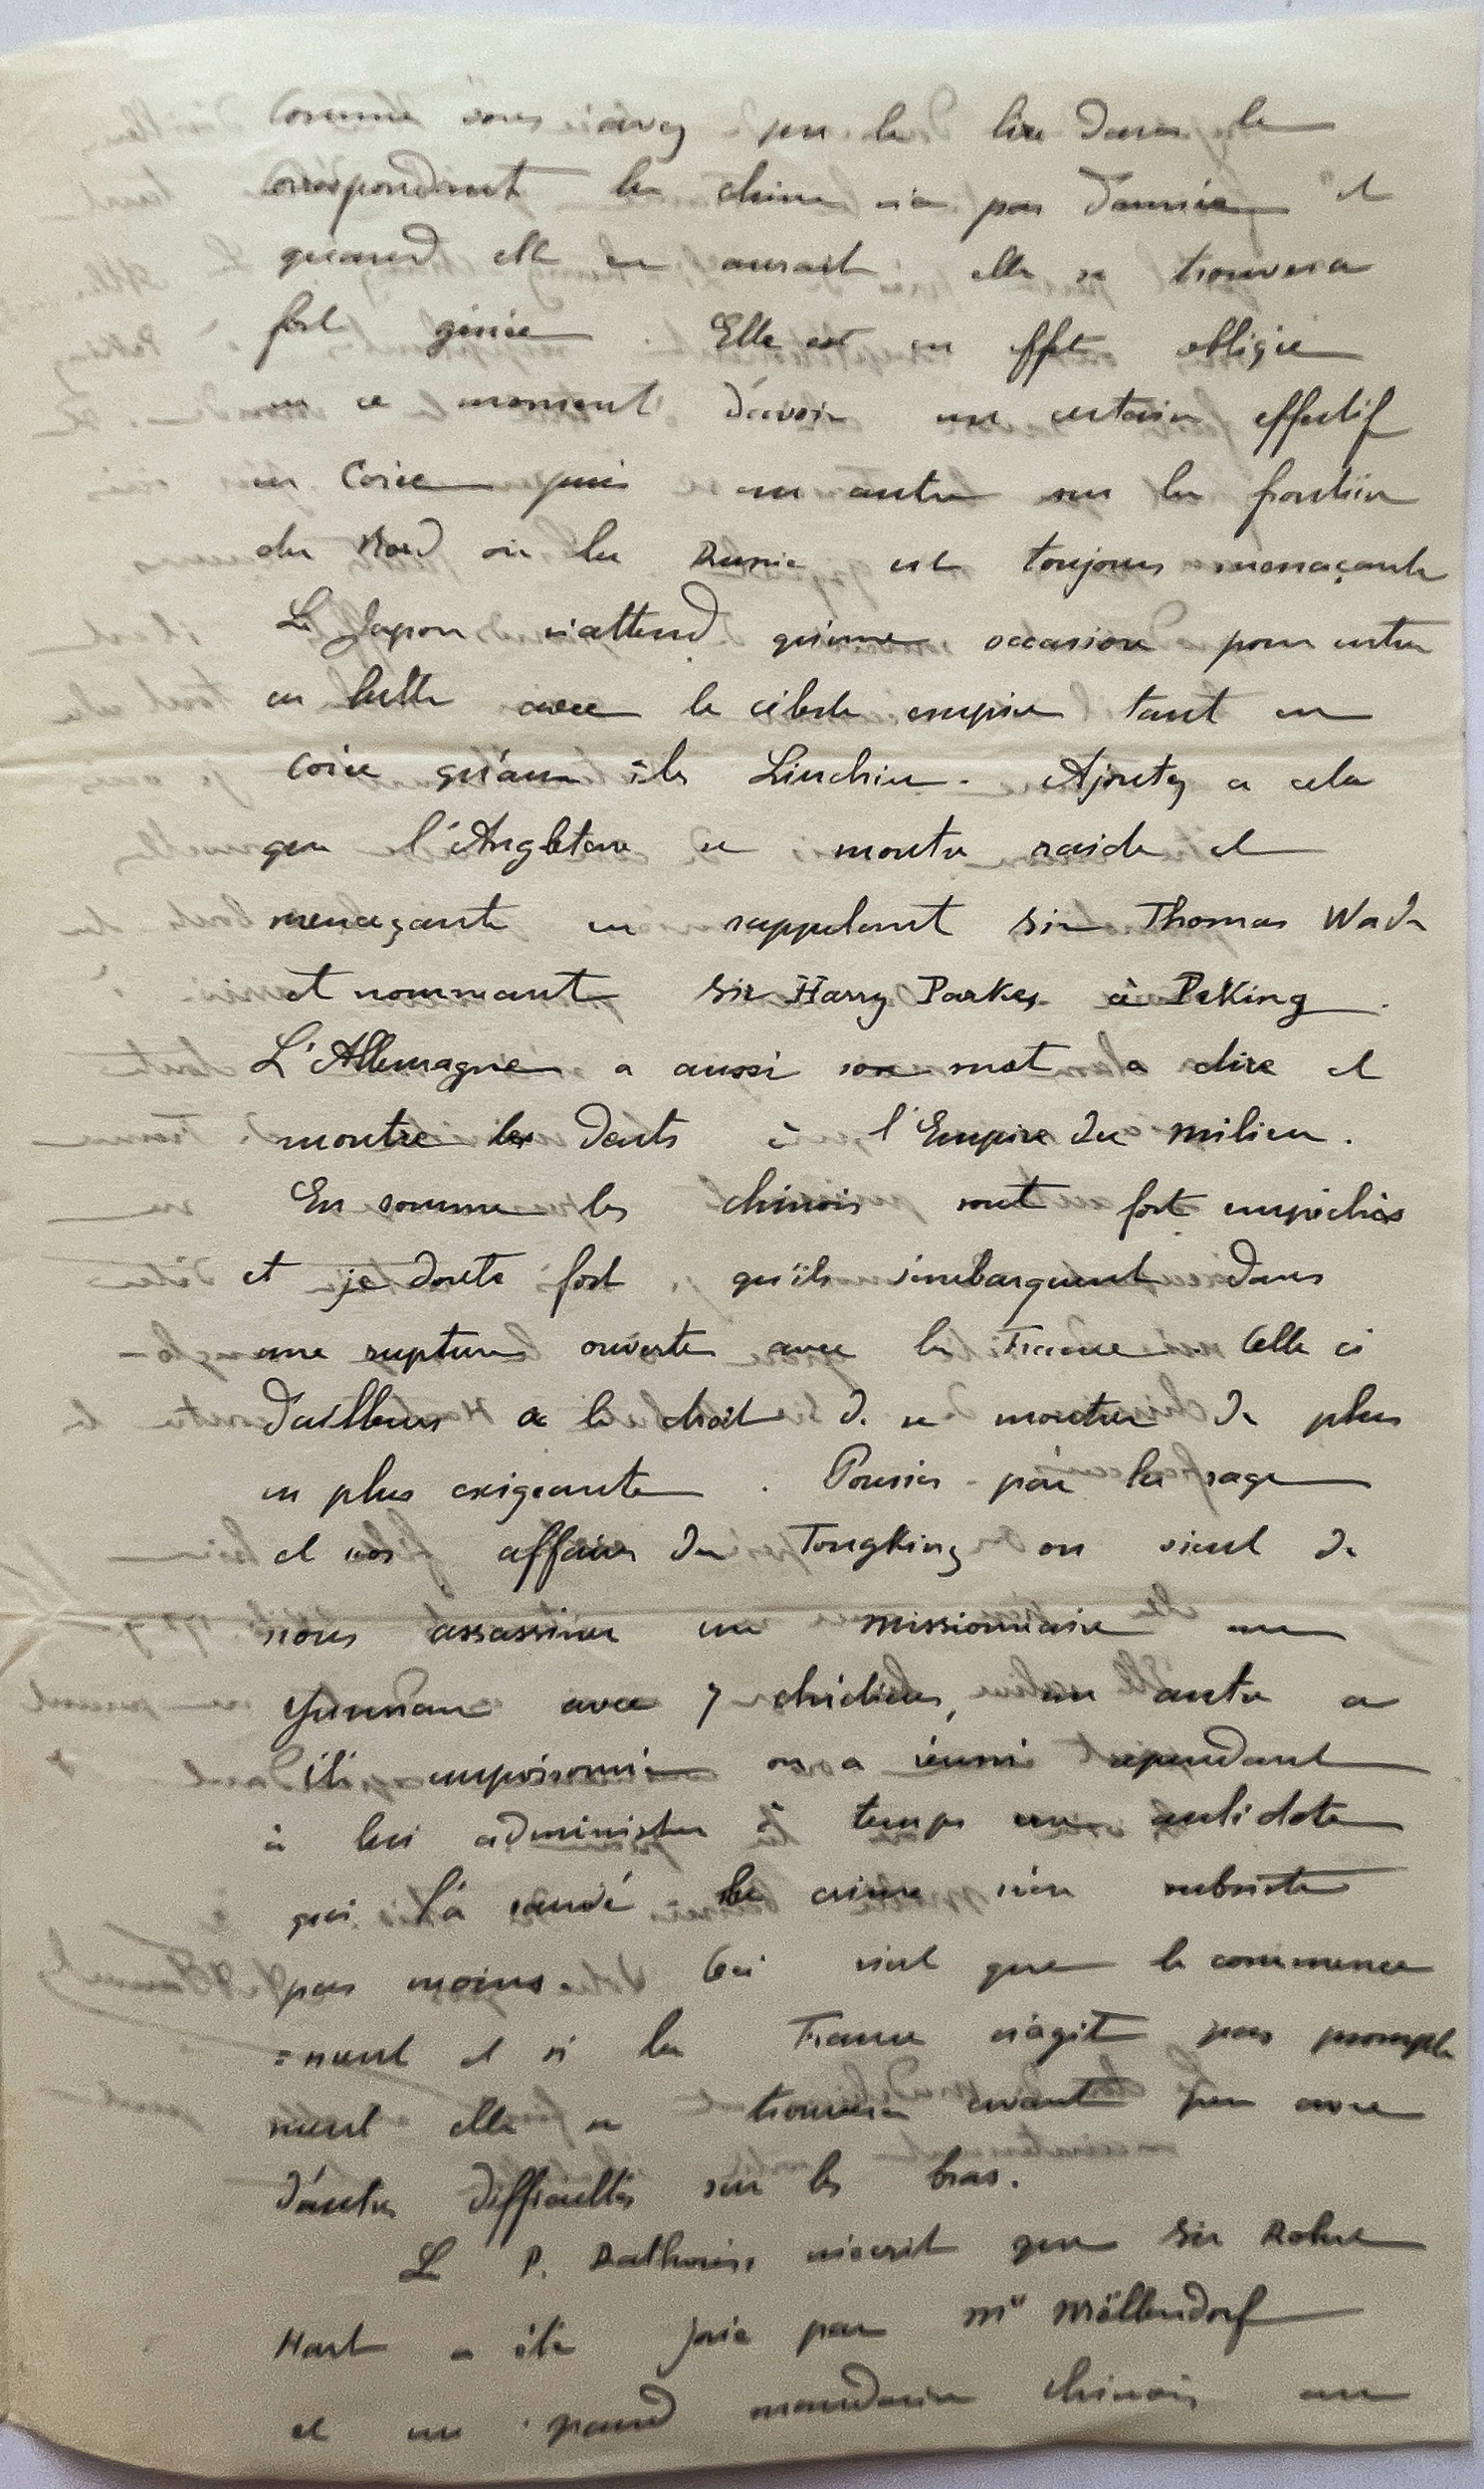 comme vous avez pu le lire dans le
correspondant la chine n'a pas d'armée et
quand elle en aurait elle se trouvera
fort génée. Elle est en effet obligée
en ce moment d'avoir un certain effectif
en Corée puis un autre sur la frontière
du Nord où la Russie est toujours menaçante
Le Japon n'attend qu'une occasion pour entrer
en lutte avec le céleste empire tant en
corée qu'aux îles Liuchiu. Ajoutez a cela
que l'Angleterre se montre raide et
menaçante en rappelant Sir Thomas Wade
et nommant Sir Harry Parkes à PeKing.
L'Allemagne a aussi son mot a dire et
montre les dents à l'Empire du milieu.
En somme les chinois sont fort empéchés
et je doute fort qu'ils s'embarquent dans
une rupture ouverte avec la France. Celle ci
d'ailleurs a le droit de se montrer de plus
en plus exigeante. Poussés par la rage
et nos affaires du TongKing on vient de
nous assassiner un missionnaire au
Yunnan avec 7 chrétiens, un autre a
été empoisonné on a réussi cependant
à lui administrer à temps un antidote
qui l'a sauvé le crime n'en subsiste
pas moins. Ceci n'est que le commence
=ment et si la France n'agit pas prompte
ment elle se trouvera avant peu avec
d'autres difficultés sur les bras.
Le P. m'écrit que Sir Robert
Hart a été joué par Mr Möllendorf
et un grand mandarin chinois au